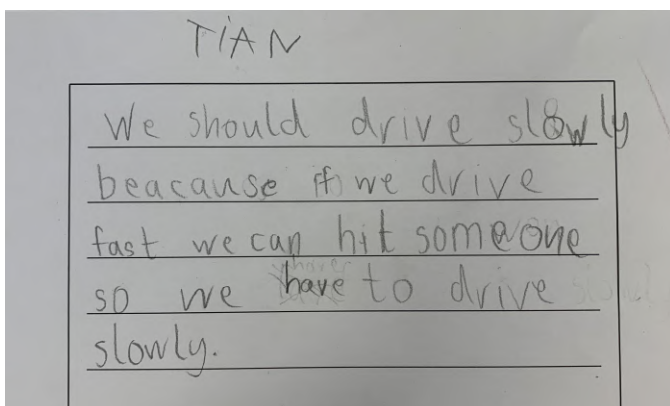 TiAN
We should drive slowly
beacause if we drive
fast we can hit someone
so we have to drive
slowly.